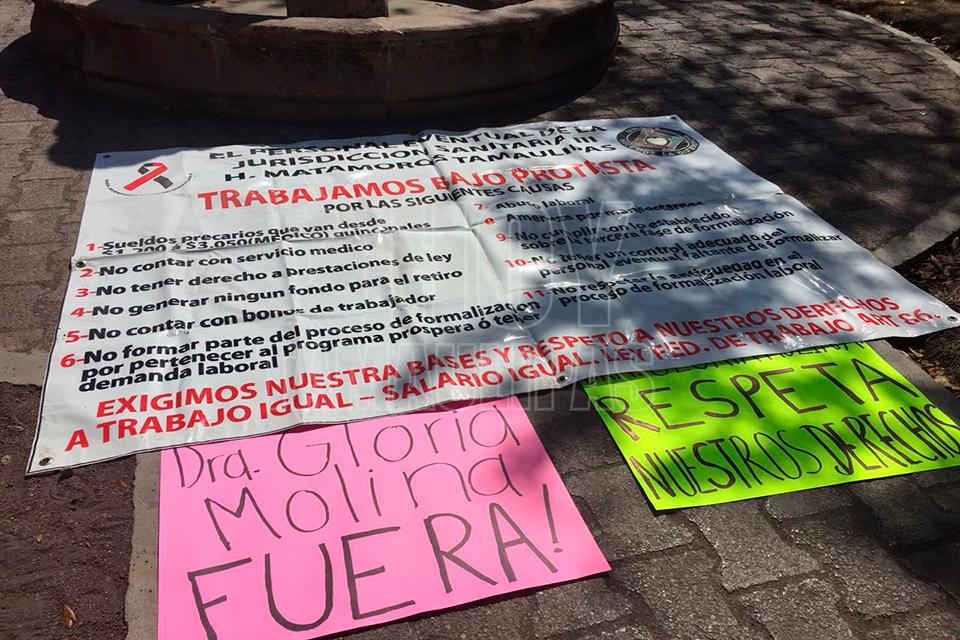 EL PERSONAL EVENTUAL DE LA
JURISDICCION SANITARIA III
H. MATAMOROS TAMAULIPAS
TRABAJAMOS BAJO PROTESTA
POR LAS SIGUIENTES CAUSAS
1-Sueldos precarios que van desde
$1,200 a $3,050(MEDICO) quincenales
2-No contar con servicio medico
3-No tener derecho a prestaciones de ley
4-No generar ningun fondo para el retiro
5-No contar con bonos de trabajador
6-No formar parte del proceso de formalizacion
por pertenecer al programa prospera ó tener
demanda laboral
7- Abuso laboral
8- Amenaza por manifestarnos
9- No cumplir con lo establecido
sobre la tercera fase de formalización
10-No tener un control adecuado del
personal eventual faltante de formalizar
11-No respetar la antigüedad en el
proceso de formalización laboral
EXIGIMOS NUESTRA BASES Y RESPETO A NUESTROS DERECHOS
A TRABAJO IGUAL – SALARIO IGUAL. LEY FED. DE TRABAJO ART 86.
Dra. Gloria
Molina
FUERA!
RESPETA
NUESTROS DERECHOS
HOY
TAMAULIPAS